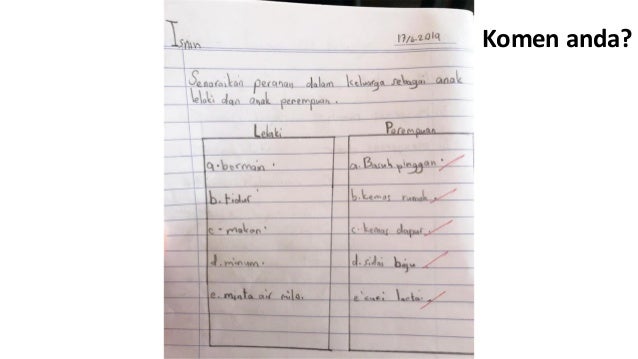 Komen anda?
Isnin
17/6.2019
Senaraikan peranan dalam keluarga sebagai anak
lelaki dan anak perempuan.
Lelaki
Perempuan
a. bermain.
a. Basuh pinggan.
b. tidur
b. kemas rumah
c. makan.
c. kemas dapur
d. minum.
d. sidai baju
e. minta air milo.
e cuci lantai